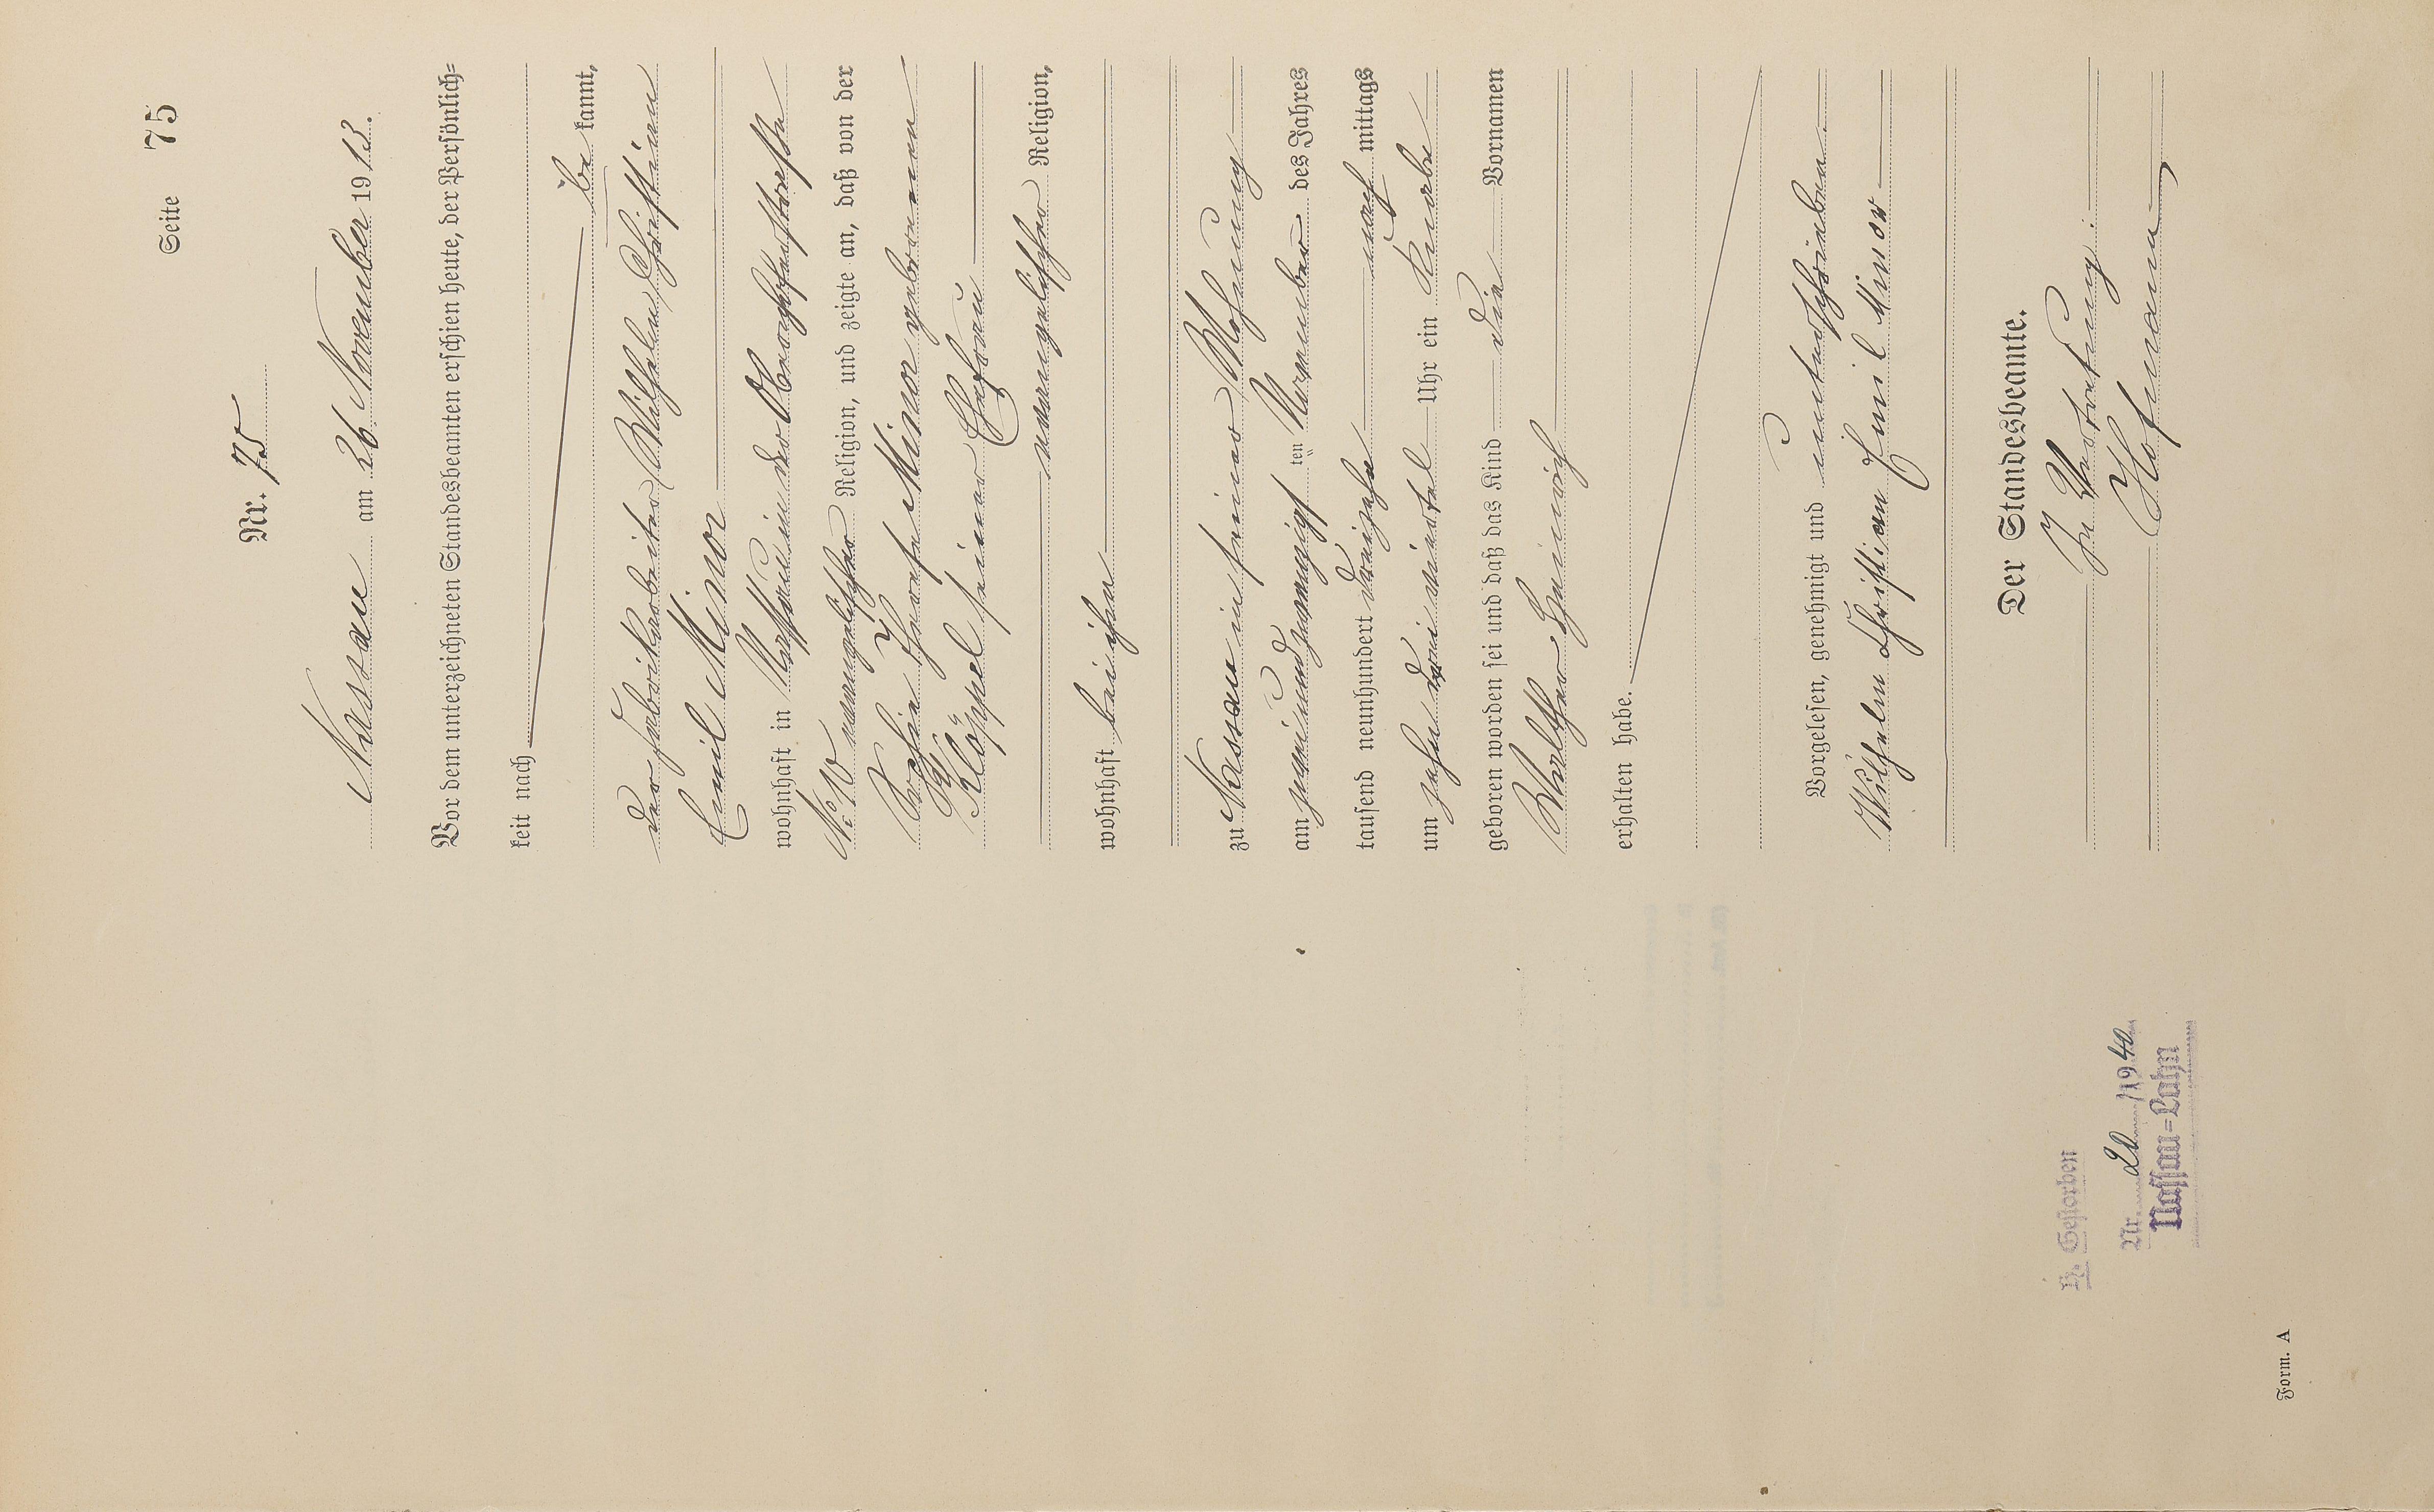 Seite 75
Nr. 75
Nassau am 26 November 1913.
Vor dem unterzeichneten Standesbeamten erschien heute, der Persönlich=
keit nach
be kannt,
der Fabrikarbeiter Wilhelm Christian
Emil Minor
wohnhaft in Nassau in der Obernhoferstraße
No 10 evangelischer Religion, und zeigte an, daß von der
Therese Minor geborenen
Klöppel seiner Ehefrau
evangelischer Religion,
wohnhaft bei ihm
zu Nassau in seiner Wohnung
am zweiundzwanzigsten November des Jahres
tausend neunhundert dreizehn nach mittags
um zehn drei viertel Uhr ein Knabe
geboren worden sei und daß das Kind die Vornamen
Walther Heinrich
erhalten habe.
Vorgelesen, genehmigt und unterschrieben.
Wilhelm Christian Emil Minor
Der Standesbeamte.
In Vertretung:
Hofmann
Gestorben
Nr. 20 /1940
Nassau=Lahn
Form. A